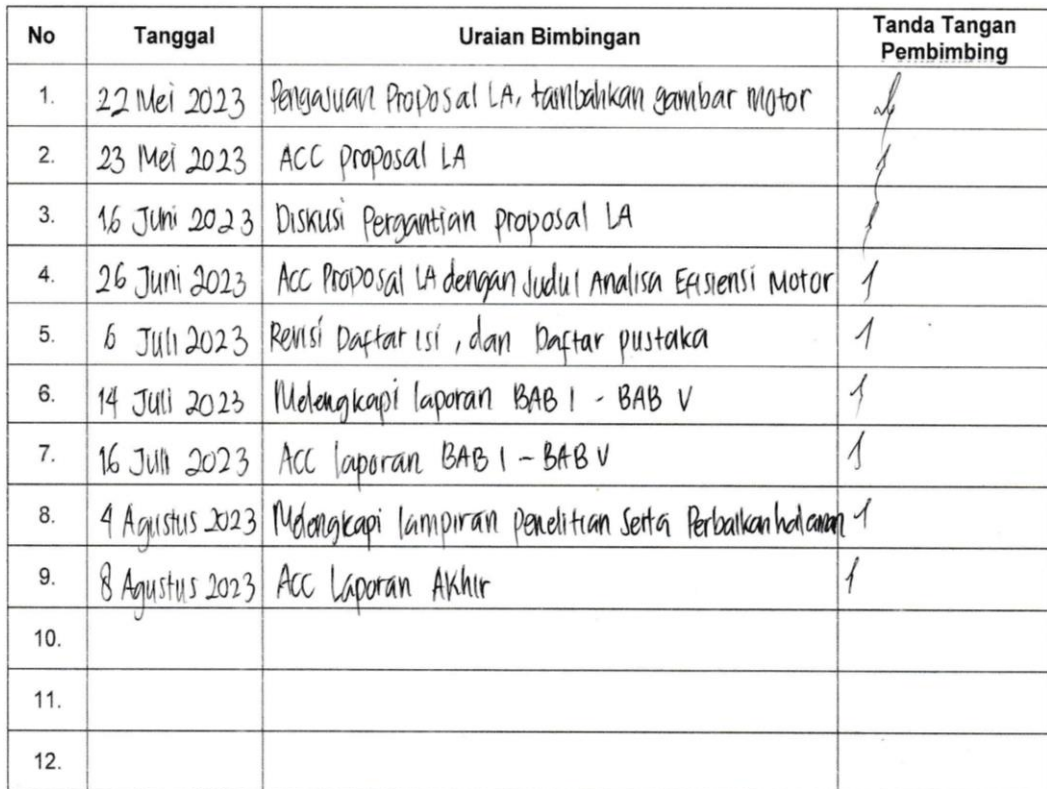 No Tanggal Uraian Bimbingan Tanda Tangan Pembimbing
1. 22 Mei 2023 Pengajuan Proposal LA, tambahkan gambar motor
2. 23 Mei 2023 ACC proposal LA
3. 16 Juni 2023 Diskusi Pergantian proposal LA
4. 26 Juni 2023 Acc Proposal LA dengan Judul Analisa Efisiensi Motor
5. 6 Juli 2023 Revisi Daftar isi, dan Daftar pustaka
6. 14 Juli 2023 Melengkapi laporan BAB I - BAB V
7. 16 Juli 2023 Acc laporan BAB I - BAB V
8. 4 Agustus 2023 Melengkapi lampiran penelitian Serta Perbaikan halaman
9. 8 Agustus 2023 Acc Laporan Akhir
10.
11.
12.